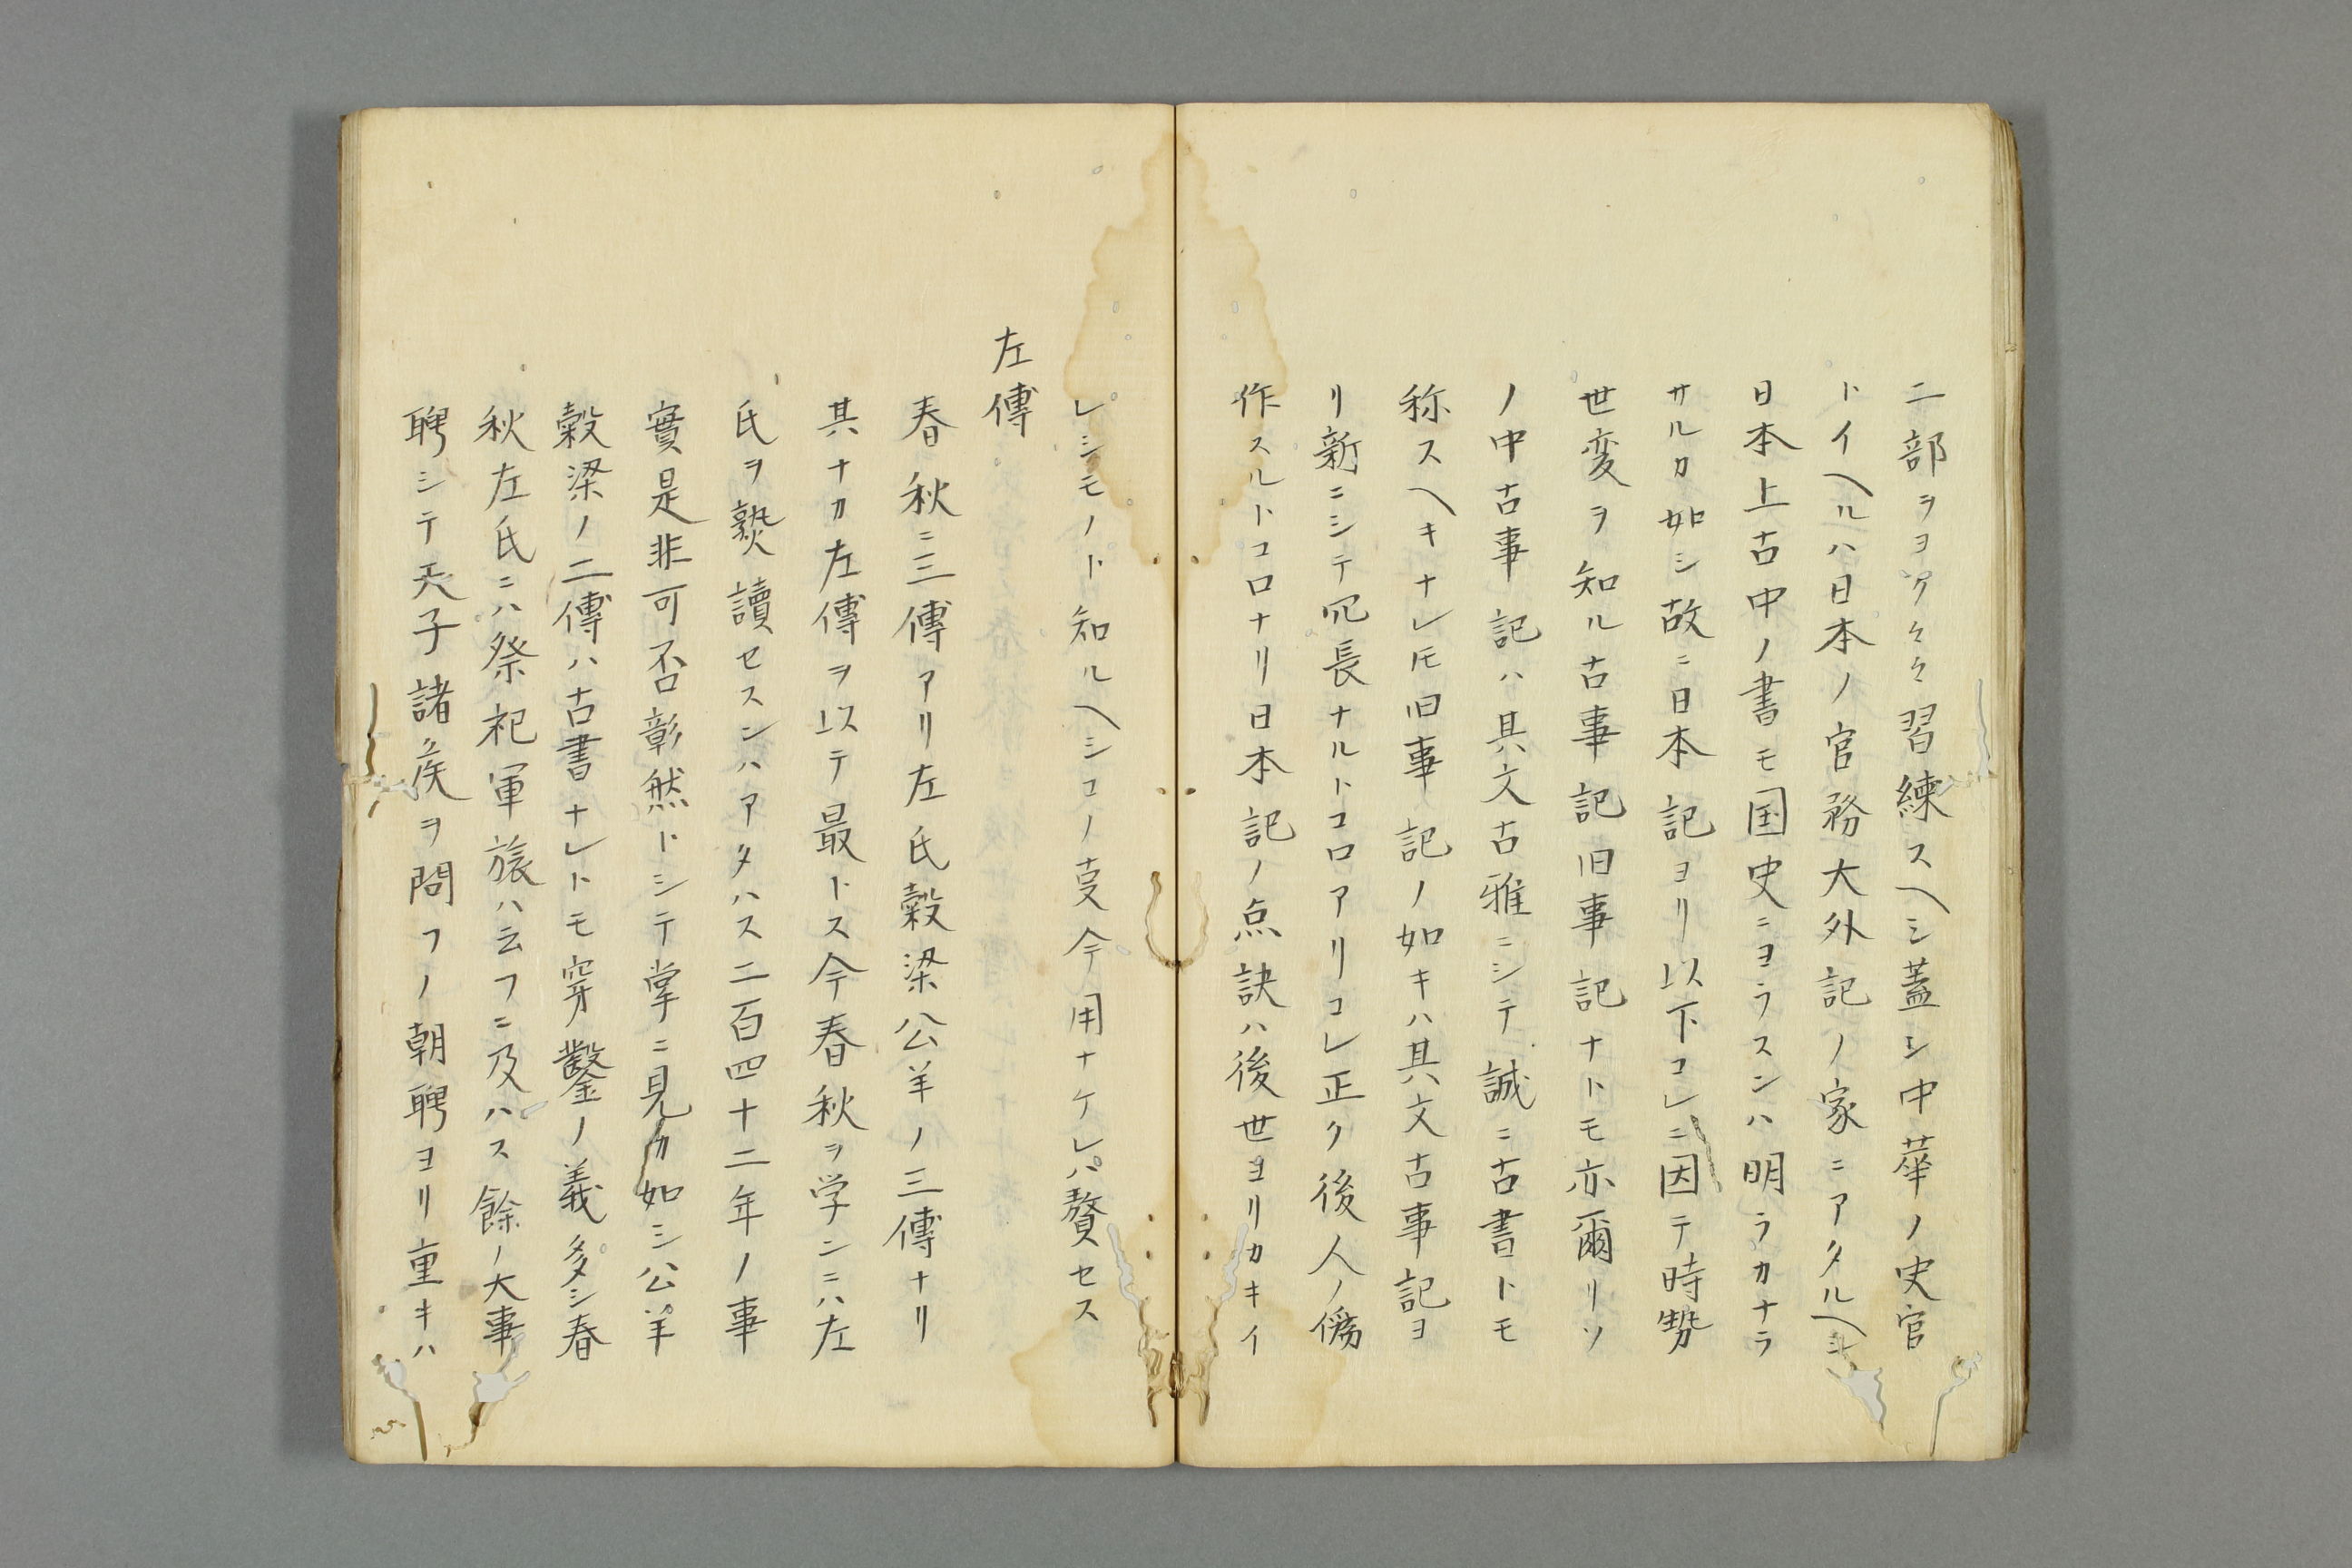 二部ヲヨククク習練スヘシ蓋シ中華ノ史官
トイヘルハ日本ノ官務大外記ノ家ニアタルヘシ
日本上古中ノ書モ国史ニヨラスンハ明ラカナラ
サルカ如シ故ニ日本記ヨリ以下コレニ因テ時勢
世変ヲ知ル古事記旧事記ナトモ亦爾リソ
ノ中古事記ハ其文古雅ニシテ誠ニ古書トモ
称スヘキナレ𪜈旧事記ノ如キハ其文古事記ヨ
リ新ニシテ冗長ナルトコロアリコレ正ク後人ノ偽
作スルトコロナリ日本記ノ点訣ハ後世ヨリカキイ
レシモノト知ルヘシコノ叓今用ナケレハ贅セス
左傳
春秋ニ三傳アリ左氏穀梁公羊ノ三傳ナリ
其ナカ左傳ヲ以テ最トス今春秋ヲ学ンニハ左
氏ヲ熟讀セスンハアタハス二百四十二年ノ事
實是非可否彰然トシテ掌ニ見カ如シ公羊
穀梁ノ二傳ハ古書ナレトモ穿鑿ノ義多シ春
秋左氏ニハ祭祀軍旅ハ云フニ及ハス餘ノ大事
聘シテ天子諸矦ヲ問フノ朝聘ヨリ重キハ